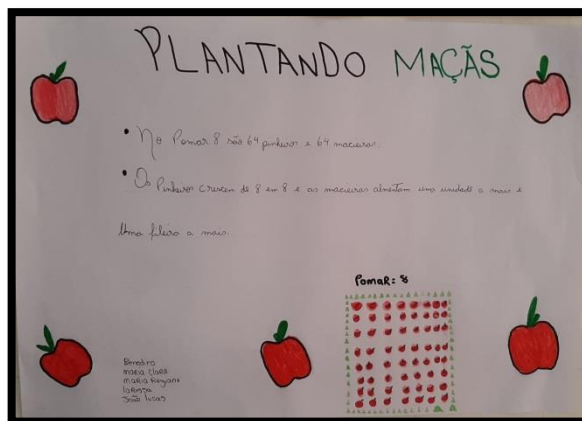 PLANTANDO MAÇÃS
• No Pomar 8 são 64 pinheiros e 64 macieiras.
• Os Pinheiros crescem de 8 em 8 e as macieiras aumentam uma unidade a mais e
Uma fileira a mais.
Pomar: 8
maria Clara
maria
João lucas